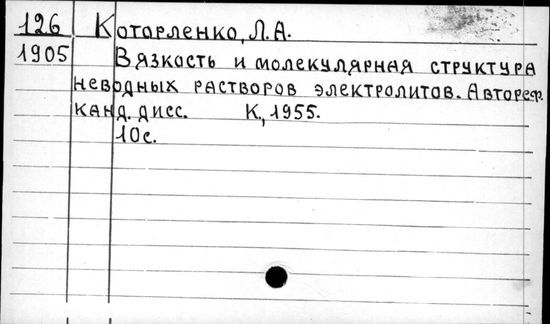 126 Котарленко, Л.А.
1905 Вязкость и молекулярная структура
неводных растворов электролитов. Автореф.
канд. дисс. К, 1955.
10с.